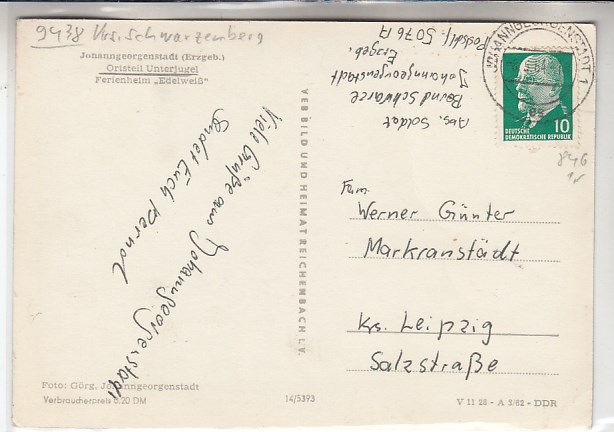 9438 Krs. Schwarzenberg
Johanngeorgenstadt (Erzgeb.)
Ortsteil Unterjugel
Ferienheim „Edelweiß"
Viele Grüße aus Johanngeorgenstadt
sendet Euch Bernd
Foto: Görg, Johanngeorgenstadt
Verbraucherpreis 0.20 DM
VEB BILD UND HEIMAT REICHENBACH I. V.
14/5393
Abs. Soldat
Bernd Schwarze
Johanngeorgenstadt
Erzgeb.
Postschl. 5076 A
JOHANNGEORGENSTADT 1
10
DEUTSCHE
DEMOKRATISCHE REPUBLIK
846
Fam.
Werner Günter
Markranstädt
Krs. Leipzig
Salzstraße
V 11 28 - A 2/62 - DDR